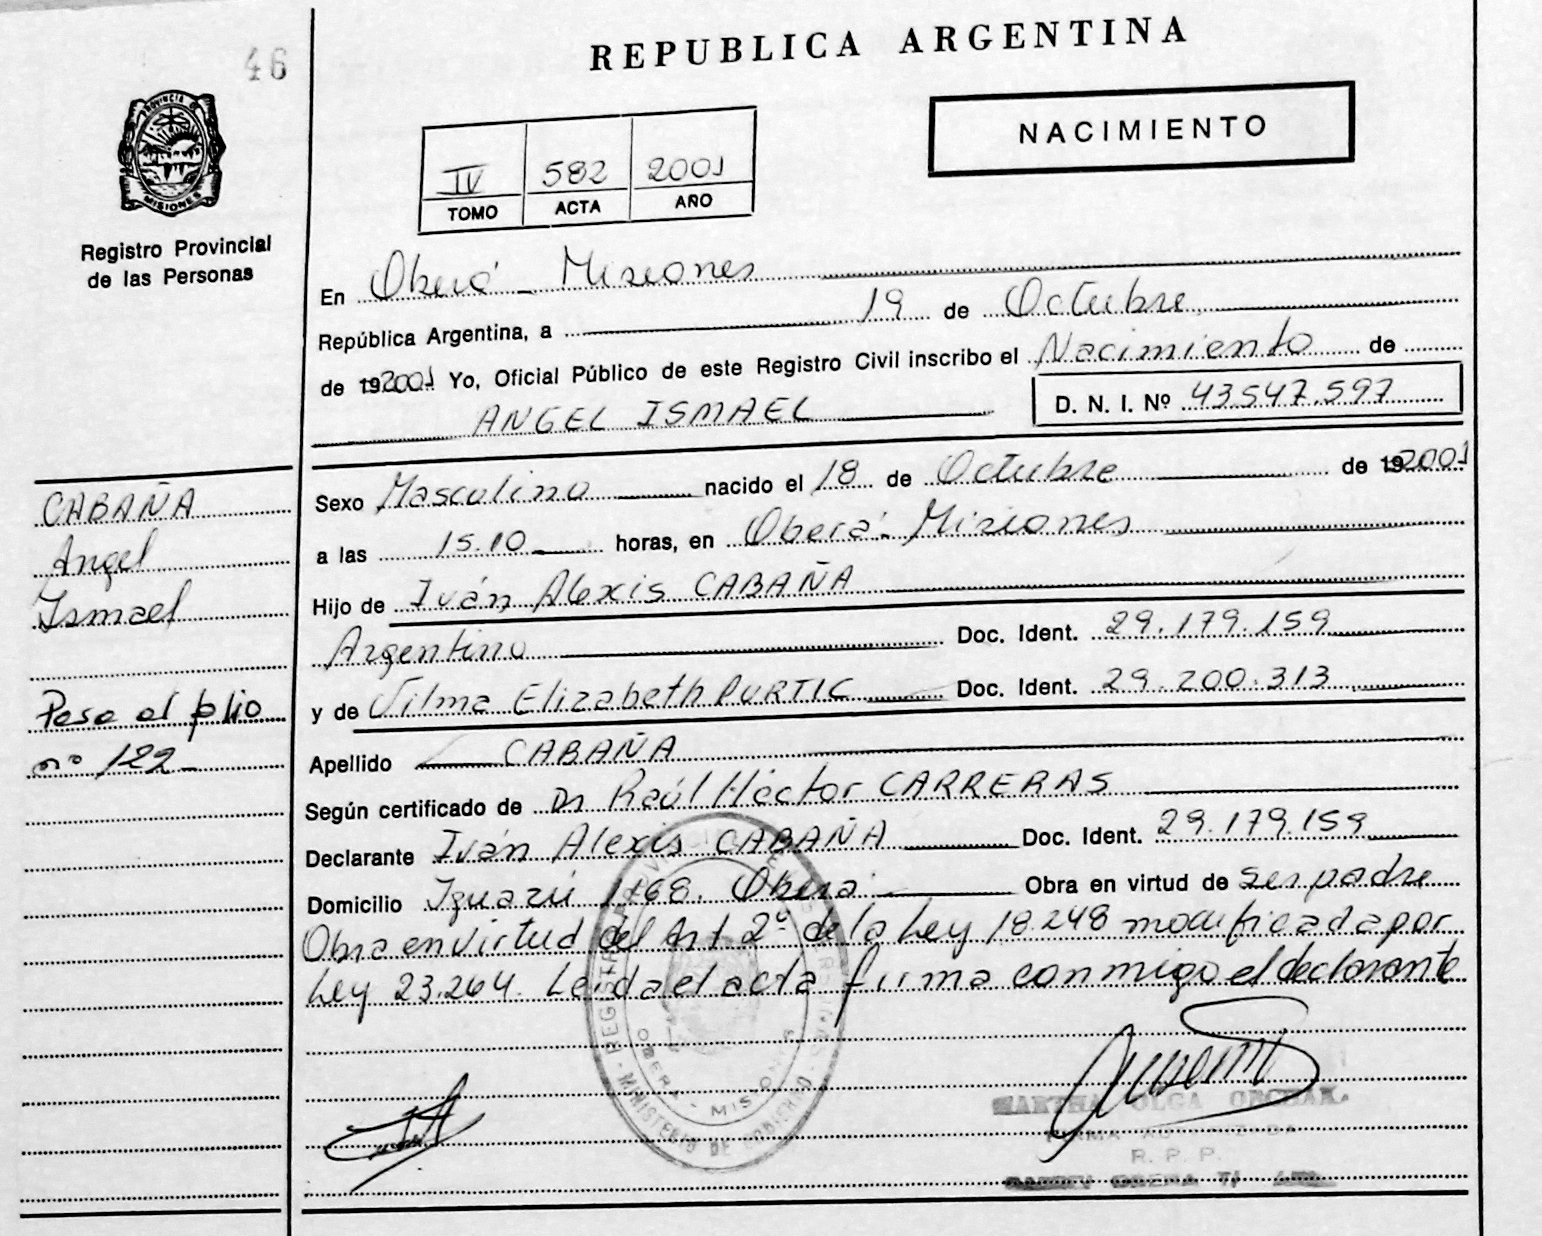 46
REPUBLICA ARGENTINA
PROVINCIA DE
MISIONES
Registro Provincial
de las Personas
IV 582 2001
TOMO ACTA AÑO
NACIMIENTO
En Oberá - Misiones
República Argentina, a 19 de Octubre
de 192001 Yo, Oficial Público de este Registro Civil inscribo el Nacimiento de
ANGEL ISMAEL D. N. I. Nº 43.547.597
CABAÑA
Angel
Ismael
Pasa al folio
nº 122
Sexo Masculino nacido el 18 de Octubre de 192001
a las 15.10 horas, en Oberá - Misiones
Hijo de Iván Alexis CABAÑA
Argentino Doc. Ident. 29.179.159
y de Vilma Elizabeth PURTIC Doc. Ident. 29.200.313
Apellido CABAÑA
Según certificado de Dr Raúl Héctor CARRERAS
Declarante Iván Alexis CABAÑA Doc. Ident. 29.179.159
Domicilio Iguazú 1468. Oberá Obra en virtud de ser padre
Obra en virtud del Art 2º de la Ley 18.248 modificada por
Ley 23.264. Leída el acta firma conmigo el declarante
OBERA - MISIONES
MINISTERIO DE GOBIERNO
MARTHA OLGA
R. P. P.